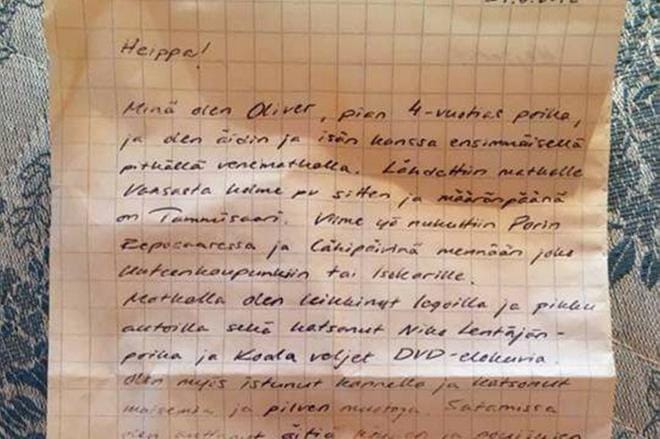 Heippa!
Minä olen Oliver, pian 4-vuotias poika,
ja olen äidin ja isän kanssa ensimmäisellä
pitkällä venematkalla. Lähdettiin matkalle
Vaasasta kolme pv sitten ja määränpäänä
on Tammisaari. Viime yö nukuttiin Porin
Reposaaressa ja lähipäivinä mennään joko
Uuteenkaupunkiin tai Isokarille.
Matkalla olen leikkinyt legoilla ja pikku
autoilla sekä katsonut Niko Lentäjän-
poika ja Koala veljet DVD-elokuvia.
Olen myös istunut kannella ja katsonut
maisemia ja pilven muotoja. Satamissa
olen auttanut äitiä